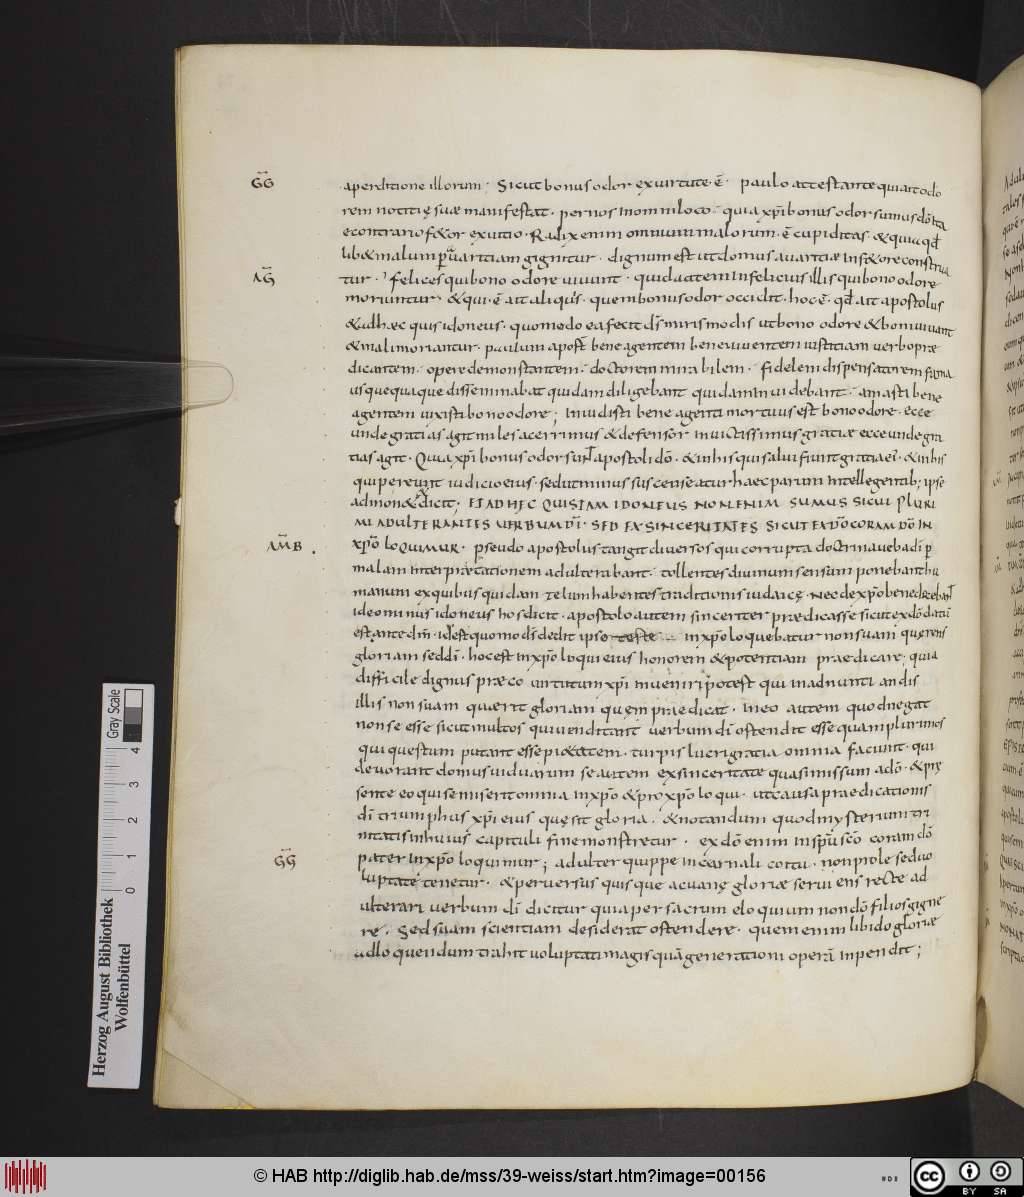 GG
a perditione illorum; Sicut bonus odor ex uirtute ē. paulo attestante qui ait odo
rem notitię suae manifestat. per nos in omni loco. quia xp̄i bonus odor sumus dō Ita
econtrario f&or ex uitio. Radix enim omnium malorum. ē cupiditas. & quia qd̄
lib& malum p̄ auaritiam gignitur. dignum est ut domus auaritiae in f&ore construa
AG
tur. Felices qui bono odore uiuunt. quid autem infelicius illis qui bono odore
moriuntur. & qui ē ait aliquis. quem bonus odor occidit. hoc ē. qd̄ ait apostolus
& ad haec quis idoneus. quomodo ea fecit dš miris modis ut bono odore & boni uiuant
& mali moriantur. paulum apost bene agentem bene uiuentem iustitiam uerbo prae
dicantem. opere demonstantem. doctorem mirabilem. fidelem dispensatorem fama
usquequaque disseminabat quidam diligebant quidam inuidebant. amasti bene
agentem uixisti bono odore; Inuidisti bene agenti mortuus est bono odore. ecce
unde gratias agit miles acerrimus & defensor inuictissimus gratiae ecce unde gra
tias agit. Quia xp̄i bonus odor sum apostoli dō. & in his qui salui fiunt gratia ei. & in his
qui pereunt iudicio eius. sed ut minus suscenseatur haec parum intellegentib; ipse
admon& & dicit; ET AD HEC QUIS TAM IDONEUS NON ENIM SUMUS SICUT PLURI
MI ADULTERANTES UERBUM DĪ. SED EX SINCERITATES SICUT EX DŌ CORAM DŌ IN
AMB.
XPŌ LOQUIMUR. pseudo apostolus tangit diuersos qui corrupta doctrina uerba dī p̄
malam interpraetationem adulterabant. tollentes diuinum sensum ponebant hu
manum ex quibus quidam zelum habentes traditionis iudaicę. Nec de xpō bene docebant
ideo minus idoneus hos dicit. apostolo autem sinceriter praedicasse sicut ex dō datum
est ante dm̄. id est quomodo dš dedit ipse in xpō loquebatur non suam quęrens
gloriam sed dī. hoc est in xpō loqui eius honorem & potentiam praedicare. quia
difficile dignus praeco uirtutum xp̄i inueniri potest qui in adnuntiandis
illis non suam quaerit gloriam quem praedicat. in eo autem quod negat
non se esse sicut multos qui uenditant uerbum dī ostendit esse quam plurimos
qui questum putant esse pi&atem. turpis lucri gratia omnia faciunt. qui
deuorant domus uiduarum se autem ex sinceritate quasi missum a dō. & prę
sente eo qui se misit omnia in xpō & pro xpō loqui. ut causa praedicationis
dī triumphus xp̄i eius quęsit gloria. & notandum quod mysterium tri
nitatis in huius capituli fine monstretur. ex dō enim in spū scō coram dō
GG
pater in xpō loquimur; adulter quippe in carnali coitu. non prole sed uo
luptate tenetur. & peruersus quisque ac uanę gloriae seruiens recte ad
ulterari uerbum dī dicitur quia per sacrum eloquium non dō filios gigne
re. Sed suam scientiam desiderat ostendere. quem enim libido gloriae
ad loquendum trahit uoluptati magis quā generationi operā inpendit;
Herzog August Bibliothek
Wolfenbüttel
Gray Scale
0 1 2 3 4
© HAB http://diglib.hab.de/mss/39-weiss/start.htm?image=00156
cc BY SA